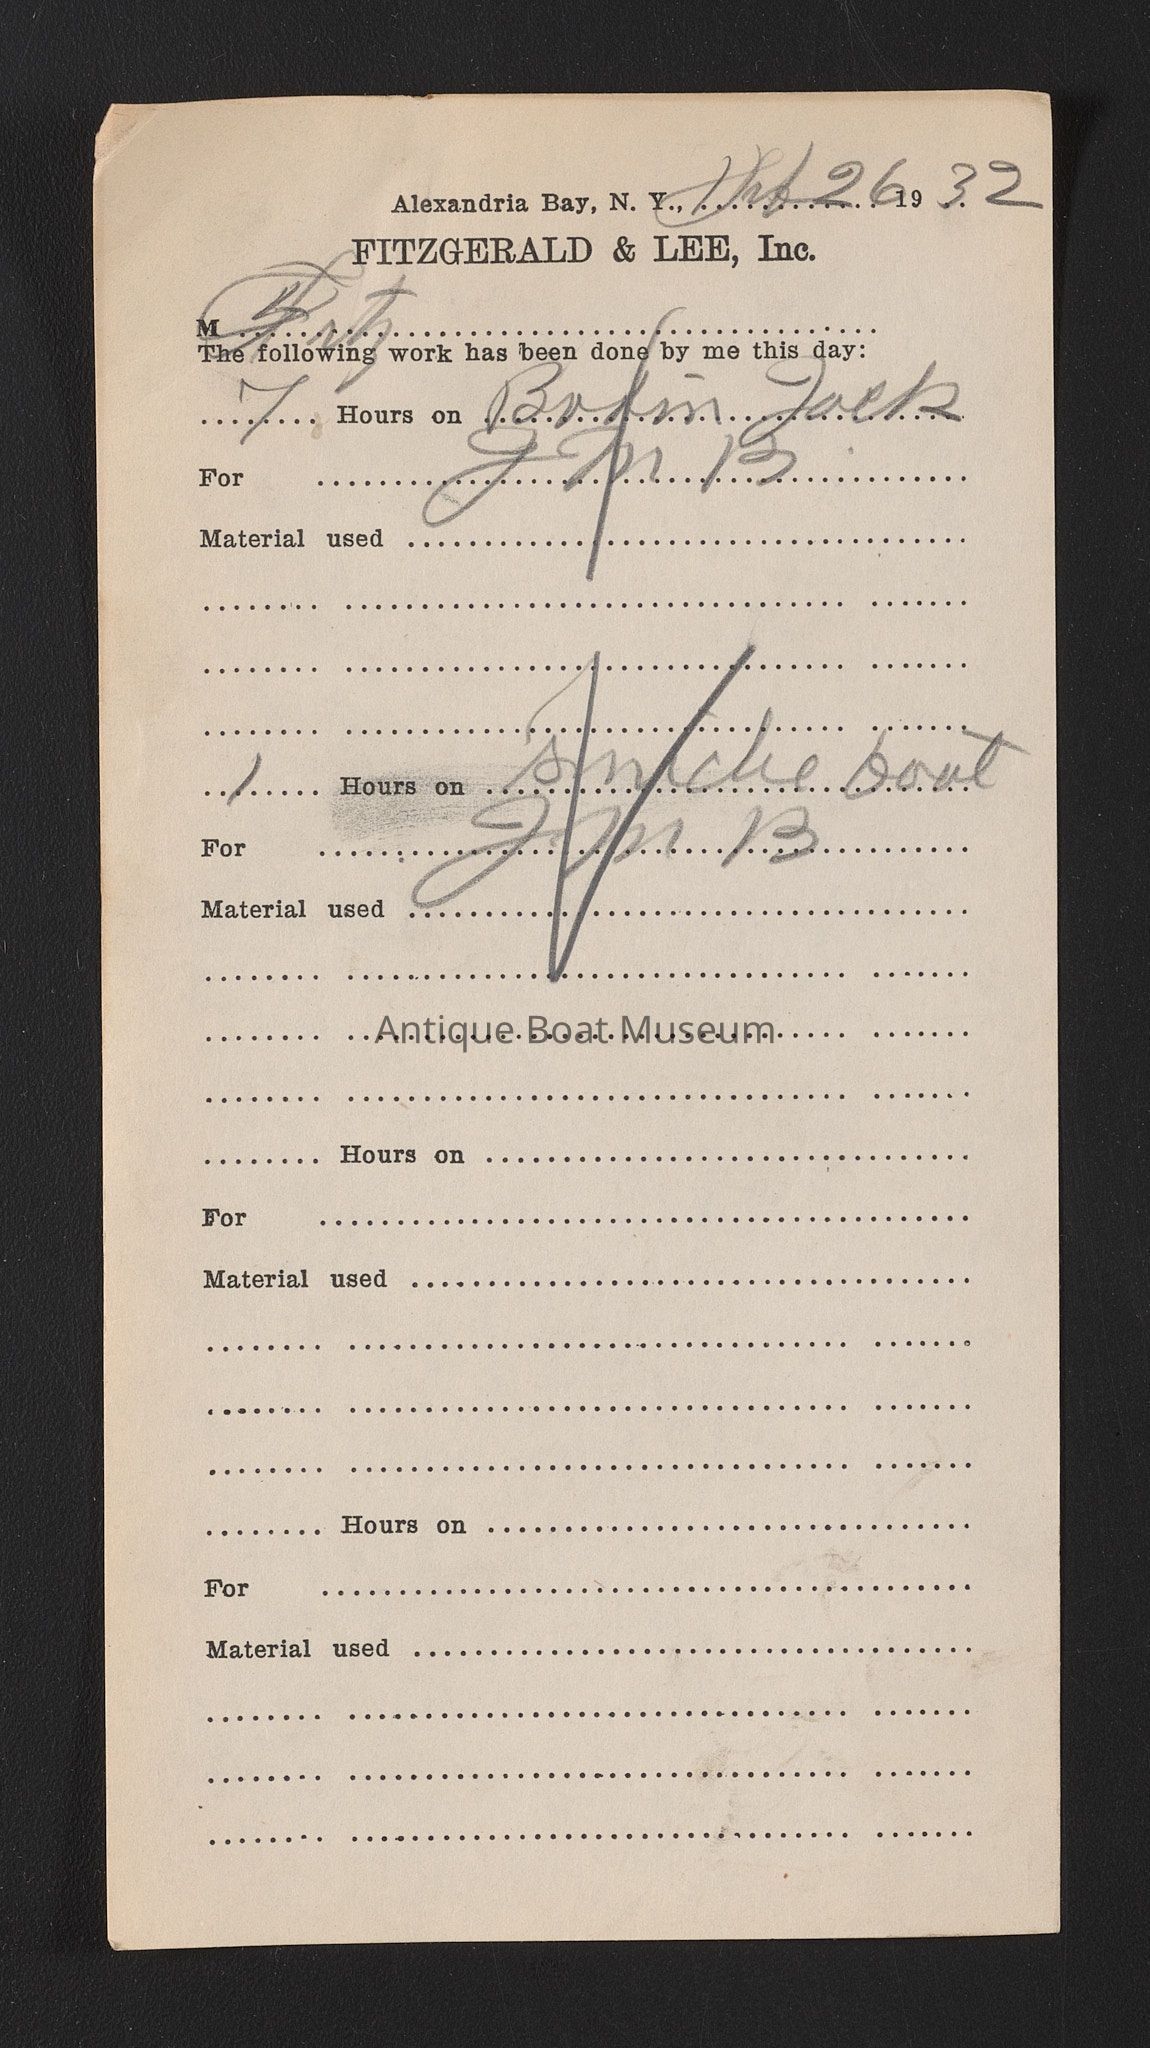 Alexandria Bay, N. Y., Oct 26 19 32
FITZGERALD & LEE, Inc.
M Fitz
The following work has been done by me this day:
7 Hours on Jack
For J M B
Material used
1 Hours on boat
For J M B
Material used
Antique Boat Museum
Hours on
For
Material used
Hours on
For
Material used